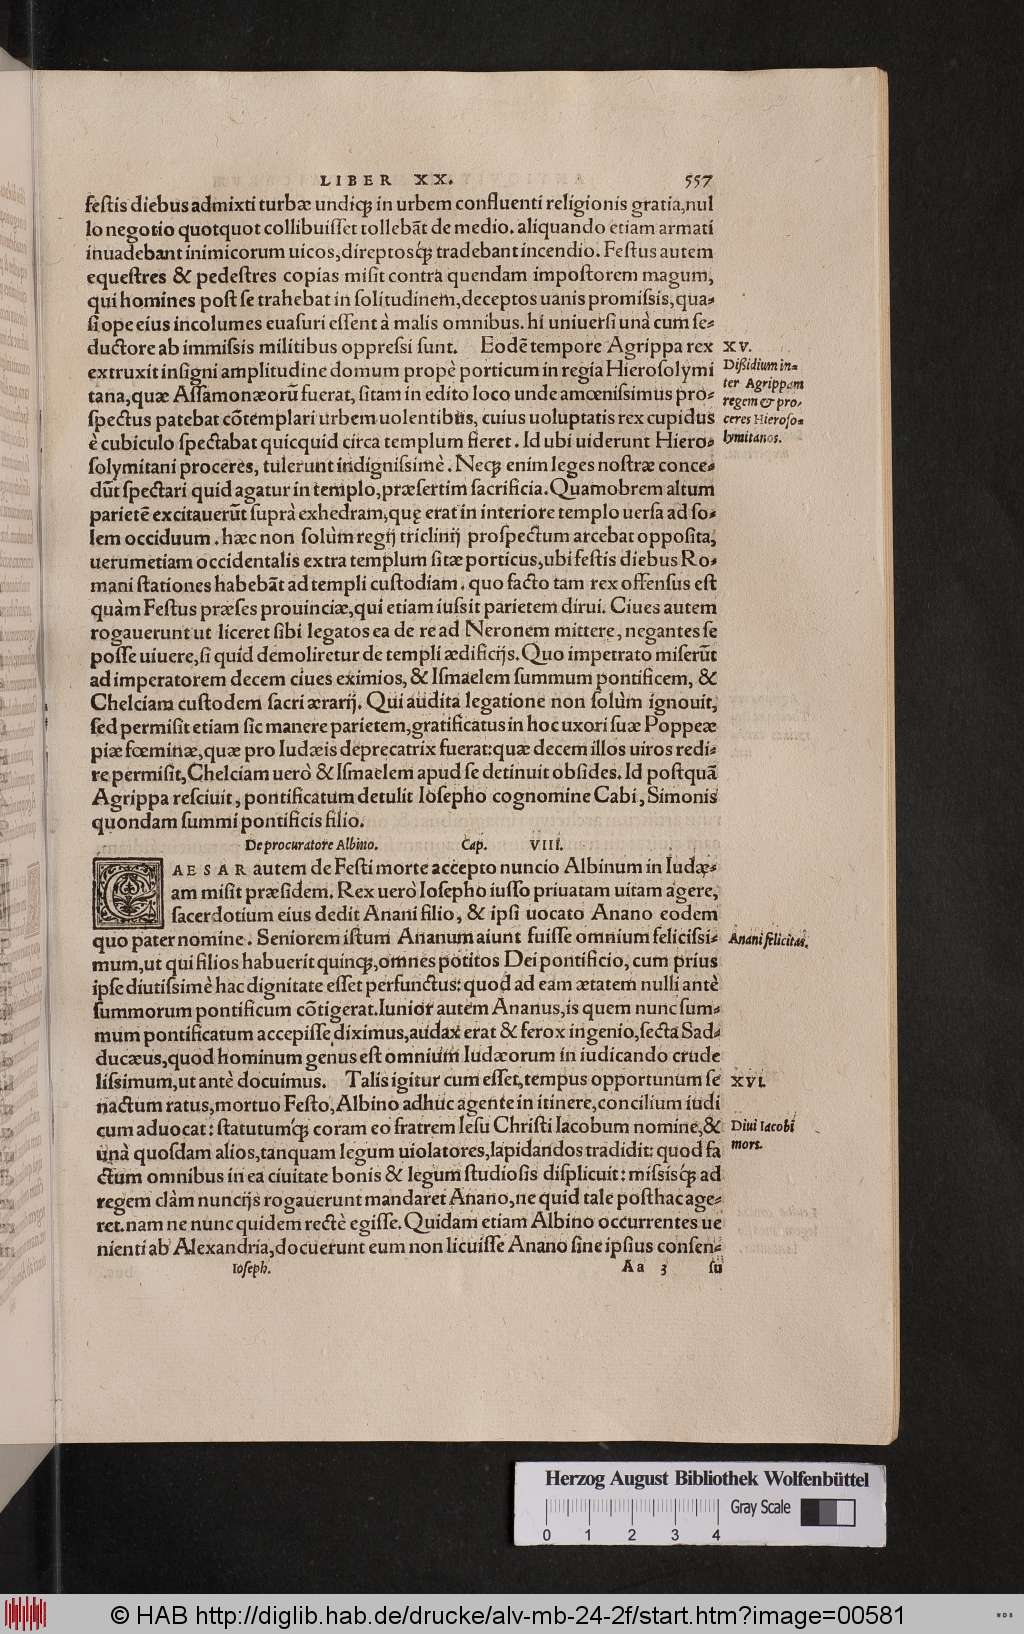 LIBER XX. 557
festis diebus admixti turbæ undiq; in urbem confluenti religionis gratia, nul
lo negotio quotquot collibuisset tollebāt de medio. aliquando etiam armati
inuadebant inimicorum uicos, direptosq́; tradebant incendio. Festus autem
equestres & pedestres copias misit contra quendam impostorem magum,
qui homines post se trahebat in solitudinem, deceptos uanis promissis, qua-
si ope eius incolumes euasuri essent à malis omnibus. hi uniuersi unà cum se-
ductore ab immissis militibus oppressi sunt. Eodē tempore Agrippa rex
XV.
extruxit insigni amplitudine domum propè porticum in regia Hierosolymi
Dißidium in-
tana, quæ Assamonæorū fuerat, sitam in edito loco unde amœnissimus pro-
ter Agrippam
spectus patebat cōtemplari urbem uolentibus, cuius uoluptatis rex cupidus
regem & pro-
è cubiculo spectabat quicquid circa templum fieret. Id ubi uiderunt Hiero-
ceres Hieroso-
solymitani proceres, tulerunt indignissimè. Neq; enim leges nostræ conce-
lymitanos.
dūt spectari quid agatur in templo, præsertim sacrificia. Quamobrem altum
parietē excitauerūt suprà exhedram, quę erat in interiore templo uersa ad so-
lem occiduum. hæc non solùm regij triclinij prospectum arcebat opposita,
uerumetiam occidentalis extra templum sitæ porticus, ubi festis diebus Ro-
mani stationes habebāt ad templi custodiam. quo facto tam rex offensus est
quàm Festus præses prouinciæ, qui etiam iussit parietem dirui. Ciues autem
rogauerunt ut liceret sibi legatos ea de re ad Neronem mittere, negantes se
posse uiuere, si quid demoliretur de templi ædificijs. Quo impetrato miserūt
ad imperatorem decem ciues eximios, & Ismaelem summum pontificem, &
Chelciam custodem sacri ærarij. Qui audita legatione non solùm ignouit,
sed permisit etiam sic manere parietem, gratificatus in hoc uxori suæ Poppeæ
piæ fœminæ, quæ pro Iudæis deprecatrix fuerat: quæ decem illos uiros redi-
re permisit, Chelciam uerò & Ismaelem apud se detinuit obsides. Id postquā
Agrippa resciuit, pontificatum detulit Iosepho cognomine Cabi, Simonis
quondam summi pontificis filio.
De procuratore Albino. Cap. VIII.
CAESAR autem de Festi morte accepto nuncio Albinum in Iudę-
am misit præsidem. Rex uerò Iosepho iusso priuatam uitam agere,
sacerdotium eius dedit Anani filio, & ipsi uocato Anano eodem
quo pater nomine. Seniorem istum Ananum aiunt fuisse omnium felicissi-
Anani felicitas.
mum, ut qui filios habuerit quinq;, omnes potitos Dei pontificio, cum prius
ipse diutissimè hac dignitate esset perfunctus: quod ad eam ætatem nulli antè
summorum pontificum cōtigerat. Iunior autem Ananus, is quem nunc sum-
mum pontificatum accepisse diximus, audax erat & ferox ingenio, secta Sad-
ducæus, quod hominum genus est omnium Iudæorum in iudicando crude
lissimum, ut antè docuimus. Talis igitur cum esset, tempus opportunum se
XVI.
nactum ratus, mortuo Festo, Albino adhuc agente in itinere, concilium iudi
cum aduocat: statutumq́; coram eo fratrem Iesu Christi Iacobum nomine, &
Diui Iacobi
unà quosdam alios, tanquam legum uiolatores, lapidandos tradidit: quod fa
mors.
ctum omnibus in ea ciuitate bonis & legum studiosis displicuit: missisq́; ad
regem clàm nuncijs rogauerunt mandaret Anano, ne quid tale posthac age-
ret. nam ne nunc quidem rectè egisse. Quidam etiam Albino occurrentes ue
nienti ab Alexandria, docuerunt eum non licuisse Anano sine ipsius consen-
Ioseph. Aa 3 su
Herzog August Bibliothek Wolfenbüttel
Gray Scale
0 1 2 3 4
© HAB http://diglib.hab.de/drucke/alv-mb-24-2f/start.htm?image=00581